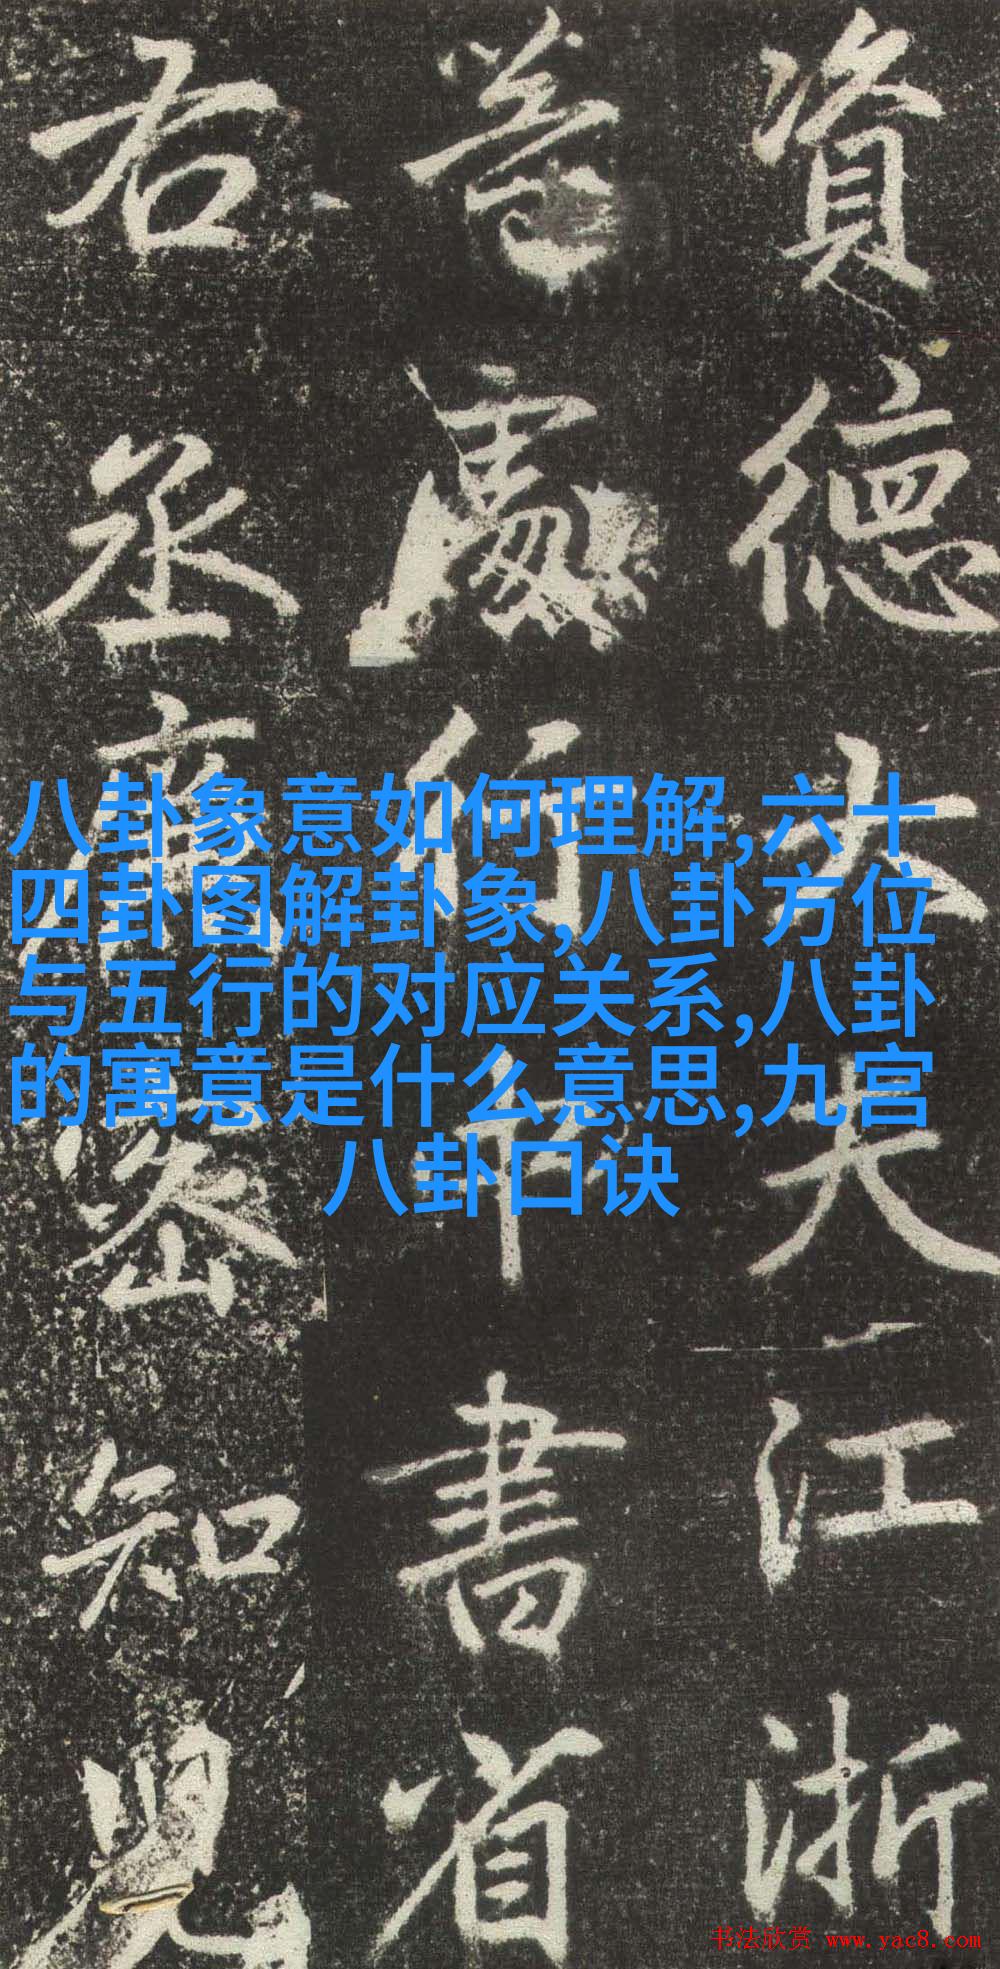 資德大夫江浙
等處行中書省
右丞廉密知兒
八卦象意如何理解,六十
四卦图解卦象,八卦方位
与五行的对应关系,八卦
的寓意是什么意思,九宫
八卦口诀
书法欣赏 www.yac8.com